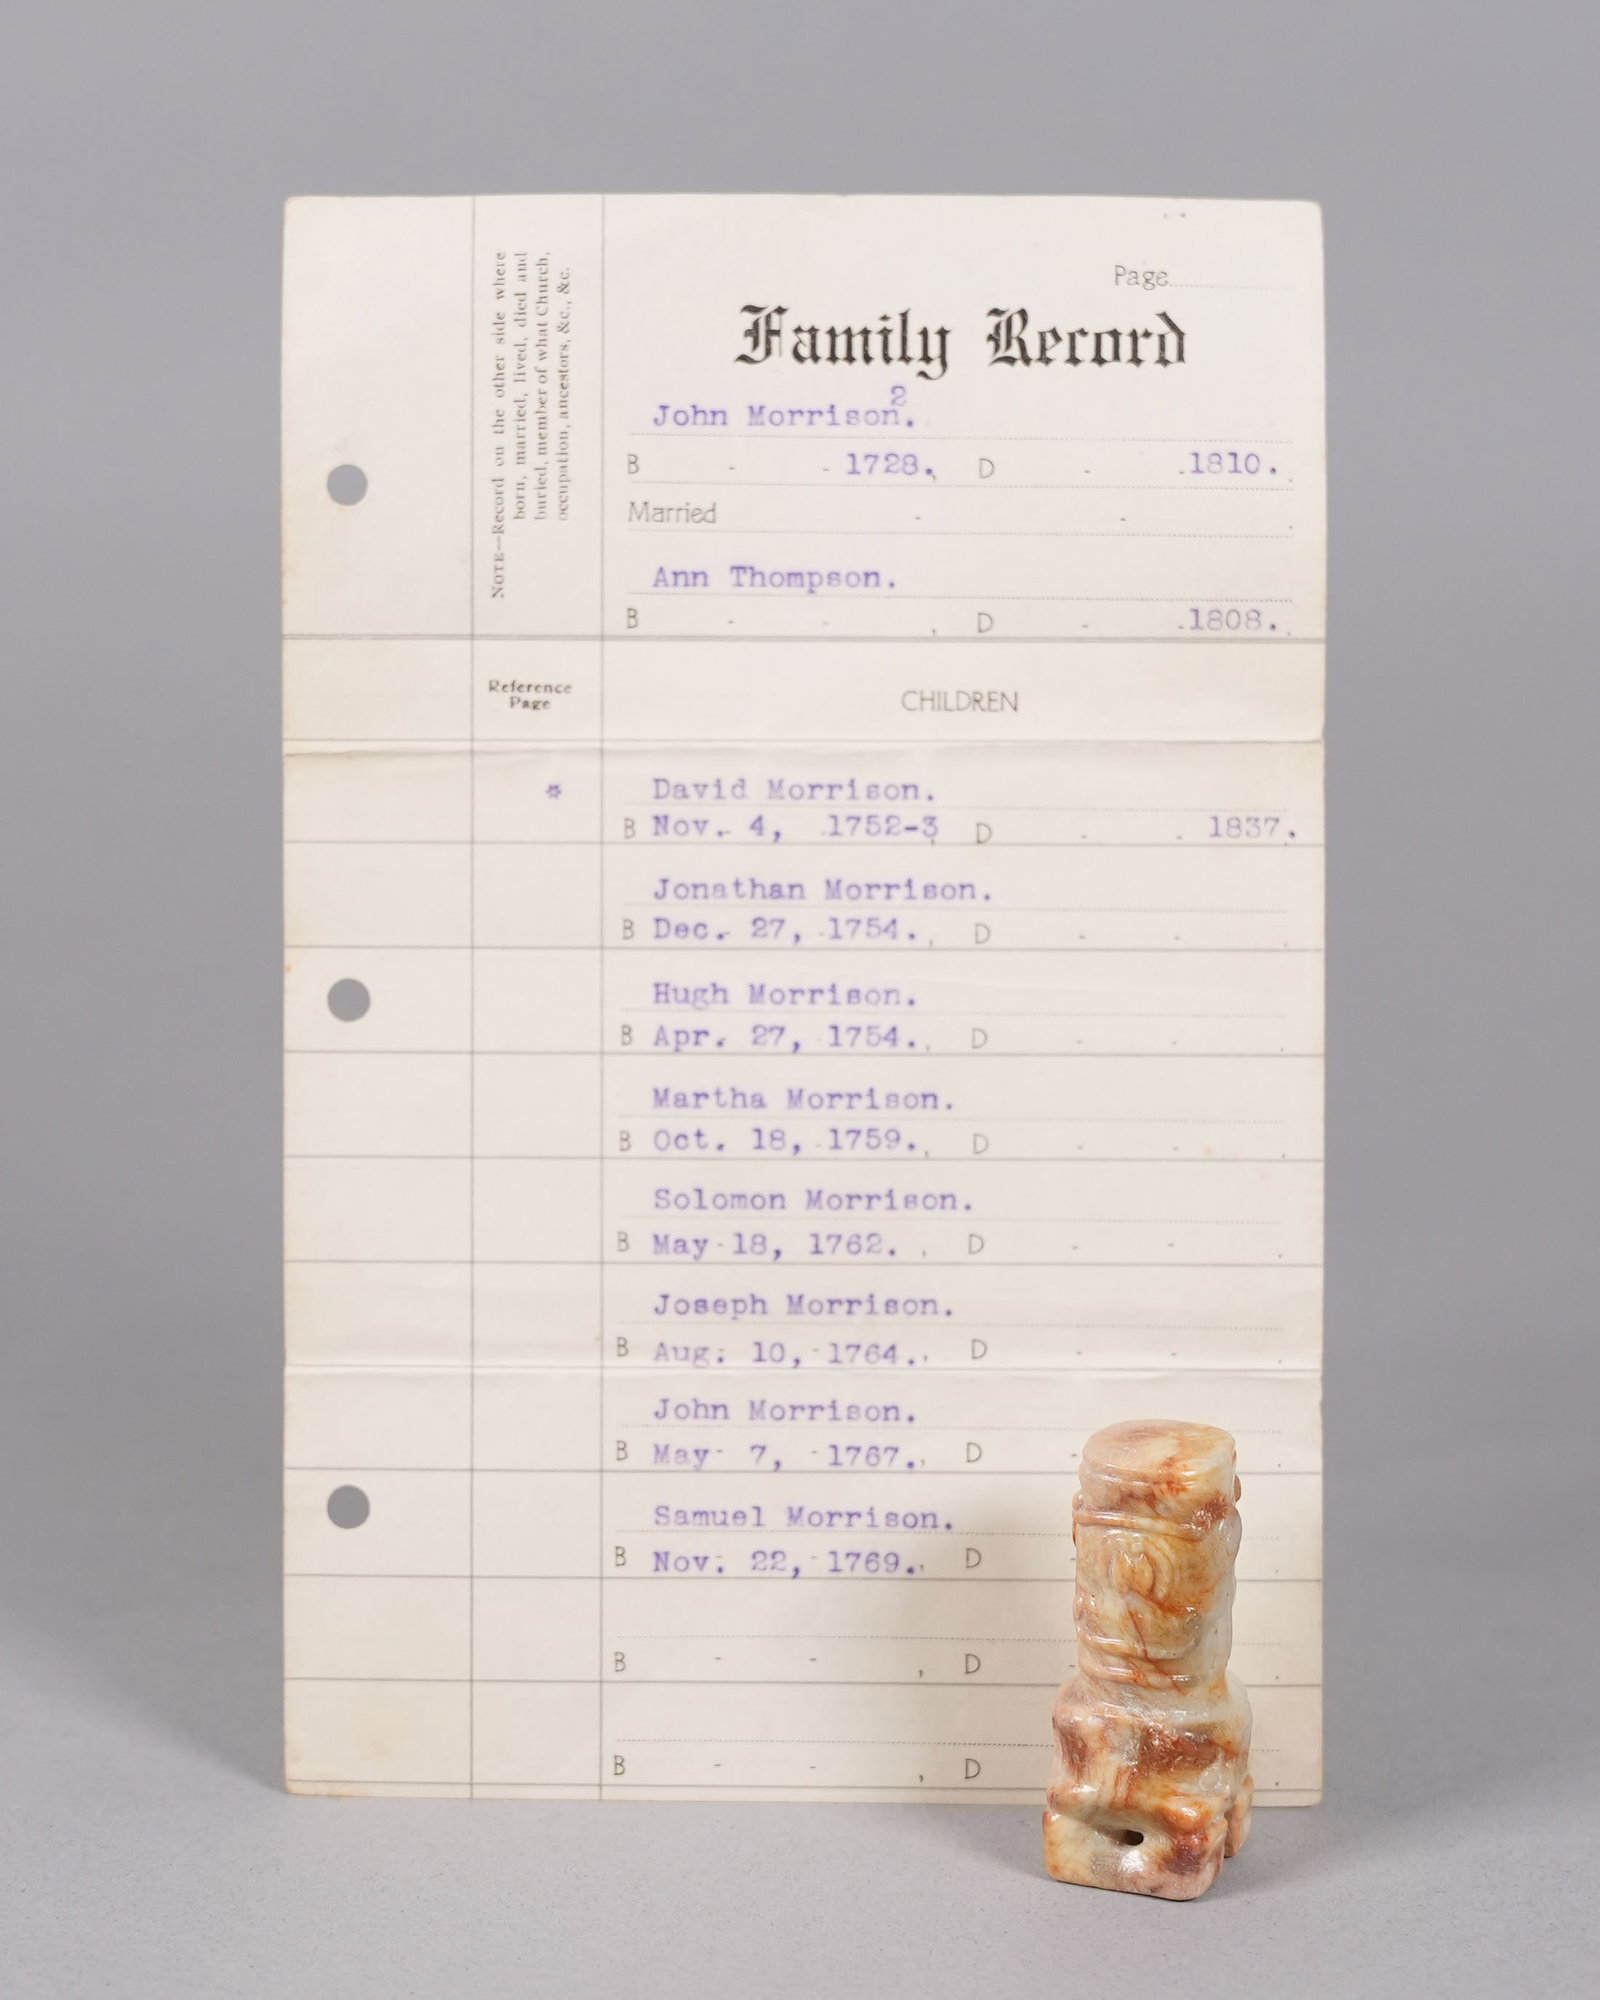 Page
Family Record
John Morrison².
B - - 1728. , D - - 1810.
Married - - .
Ann Thompson.
B - - , D - - 1808.
NOTE—Record on the other side where
born, married, lived, died and
buried, member of what Church,
occupation, ancestors, &c., &c.
Reference
Page
CHILDREN
* David Morrison.
B Nov. 4, 1752-3 D - - 1837.
Jonathan Morrison.
B Dec. 27, 1754. , D - - .
Hugh Morrison.
B Apr. 27, 1754. , D - - .
Martha Morrison.
B Oct. 18, 1759. , D - - .
Solomon Morrison.
B May 18, 1762. , D - - .
Joseph Morrison.
B Aug. 10, 1764. , D - - .
John Morrison.
B May 7, 1767. , D -
Samuel Morrison.
B Nov. 22, 1769. , D -
B - - , D -
B - - , D